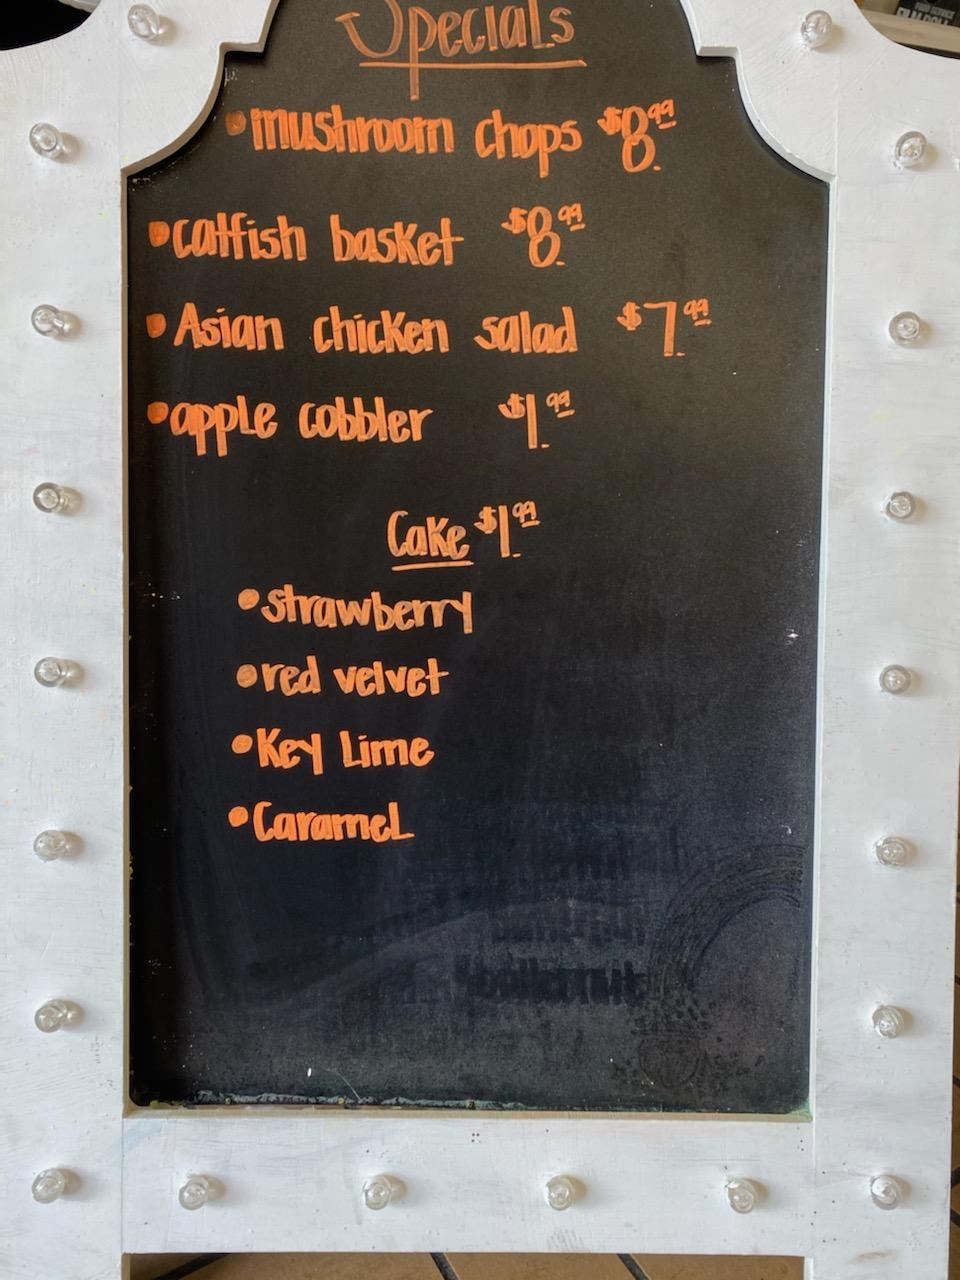 Specials
• mushroom chops $8.99
• catfish basket $8.99
• Asian chicken salad $7.99
• apple cobbler $1.99
Cake $1.99
• strawberry
• red velvet
• Key Lime
• Caramel